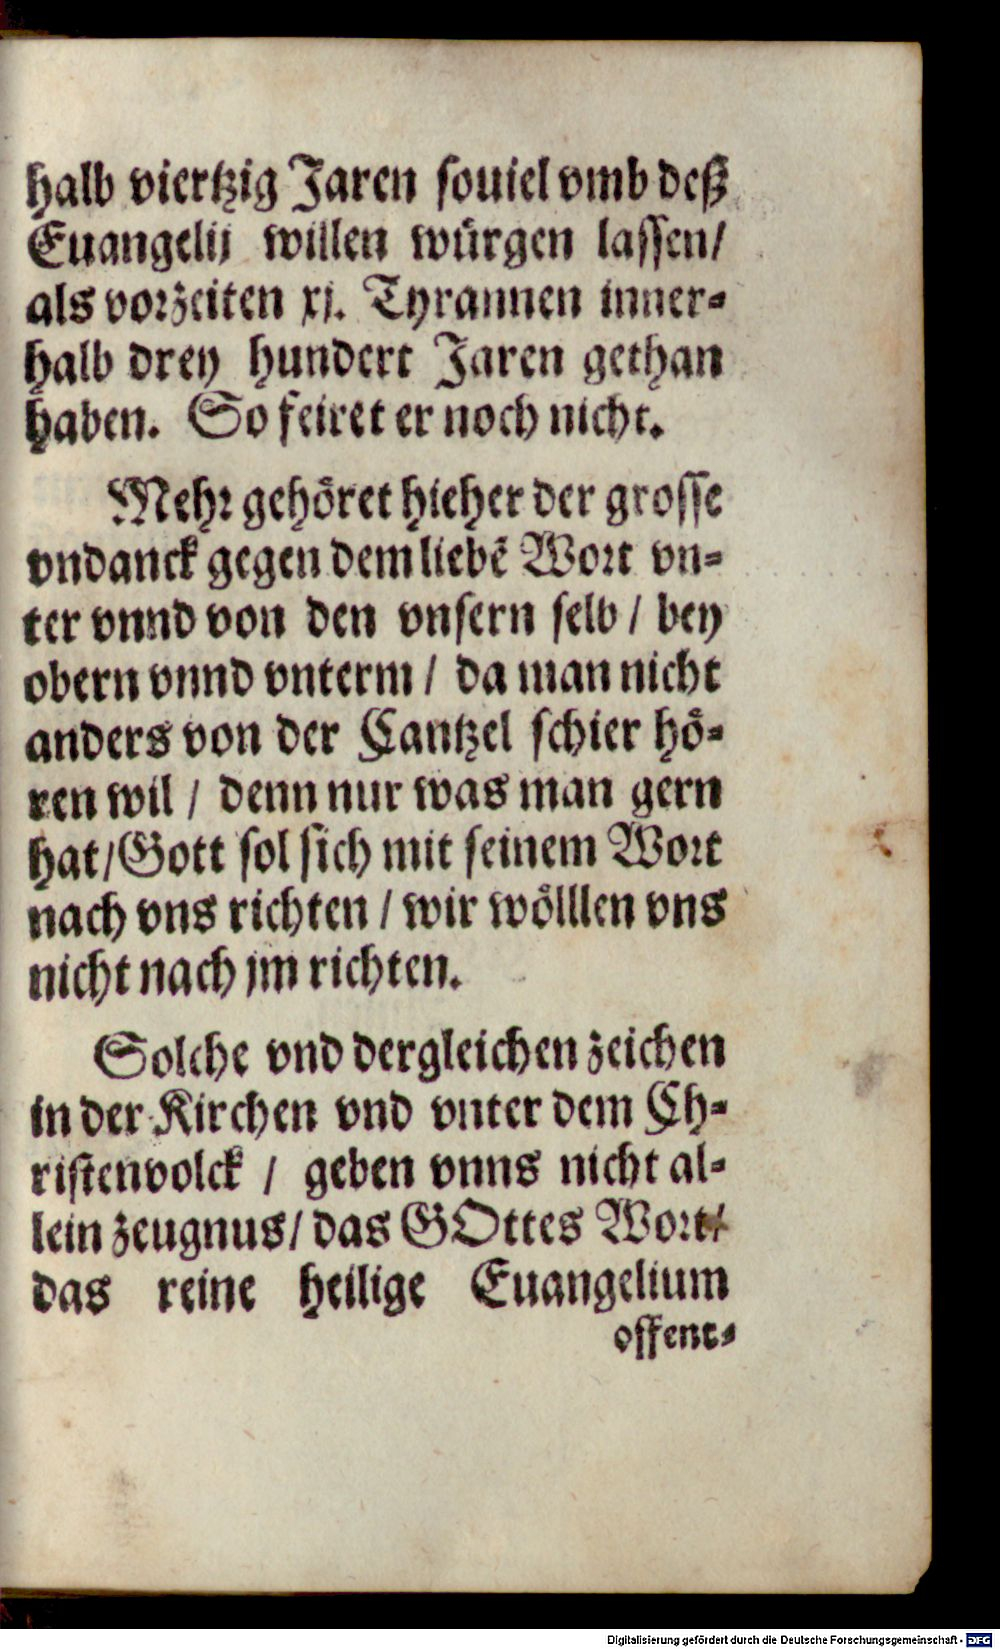 halb viertzig Jaren souiel vmb deß
Euangelij willen würgen lassen/
als vorzeiten xj. Tyrannen inner-
halb drey hundert Jaren gethan
haben. So feiret er noch nicht.
Mehr gehöret hieher der grosse
vndanck gegen dem liebē Wort vn-
ter vnnd von den vnsern selb / bey
obern vnnd vnterm / da man nicht
anders von der Cantzel schier hö-
ren wil / denn nur was man gern
hat/Gott sol sich mit seinem Wort
nach vns richten / wir wölllen vns
nicht nach jm richten.
Solche vnd dergleichen zeichen
in der Kirchen vnd vnter dem Ch-
ristenvolck / geben vnns nicht al-
lein zeugnus/ das GOttes Wort/
das reine heilige Euangelium
offent-
Digitalisierung gefördert durch die Deutsche Forschungsgemeinschaft - DFG